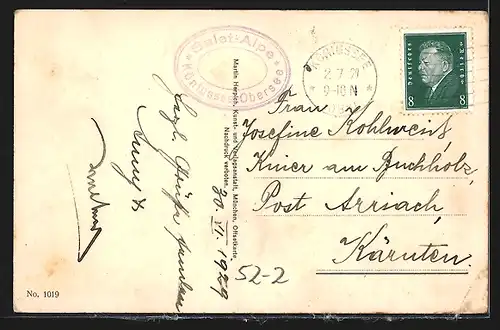 Salet-Alpe
Königssee-Obersee
KÖNIGSSEE
2.7.29
9-10N
Deutsches Reich
8 8
Frau
Josefine Kohlweiß,
Knier am Buchholz,
Post Arriach,
Kärnten.
Martin Herpich, Kunst- und Verlagsanstalt, München, Offsetkarte.
Nachdruck verboten.
30. VI. 1929
Herzl. Grüße
52-2
No. 1019